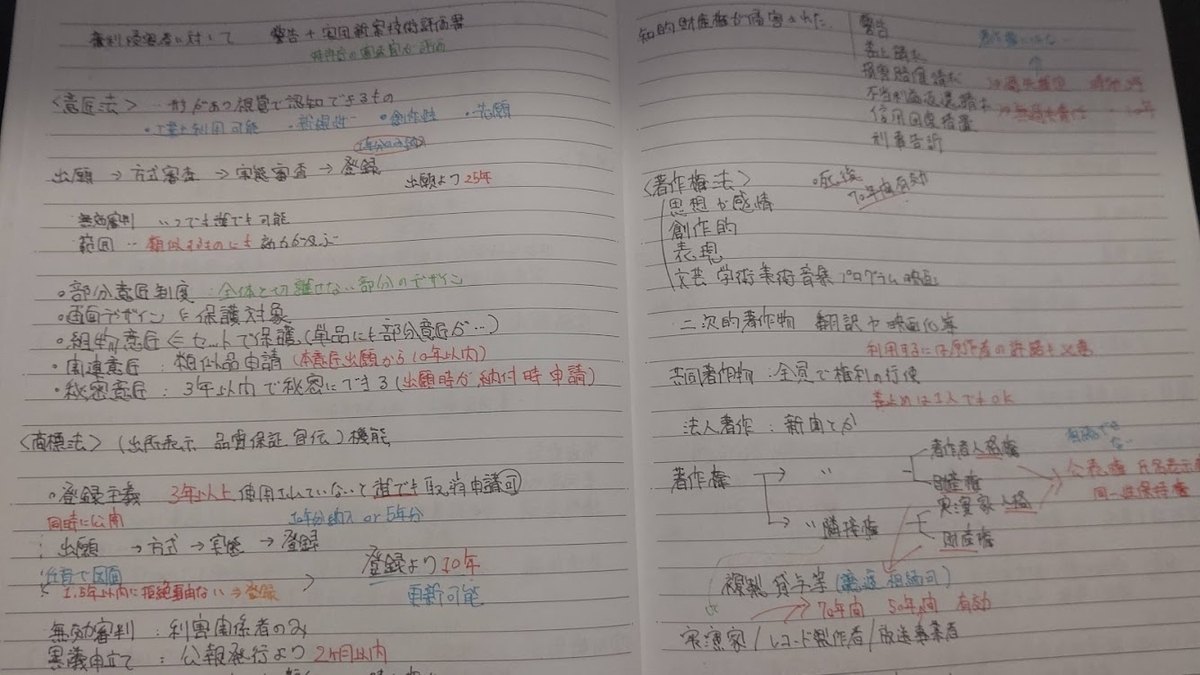 権利侵害者に対して 警告+実用新案技術評価書
特許庁の審査官が評価
<意匠法> …形があり視覚で認知できるもの
・工業上利用可能 ・新規性 ・創作性 ・先願
1年分のみ納
出願→方式審査→実体審査→登録
出願より25年
無効審判 いつでも誰でも可能
範囲…類似するものにも効力が及ぶ
・部分意匠制度:全体と切離せない部分のデザイン
・画面デザイン ∈保護対象
・組物意匠 ∈セットで保護(単品にも部分意匠が…)
・関連意匠:類似品申請(本意匠出願から10年以内)
・秘密意匠:3年以内で秘密にできる(出願時か納付時申請)
<商標法>(出所表示 品質保証 宣伝)機能
・登録主義 3年以上使用されていないと誰でも取消申請可
同時に公開 10年分納入or5年分
出願→方式→実態→登録
登録より10年
更新可能
1.5年以内に拒絶理由ない⇒登録
無効審判:利害関係者のみ
異議申立て:公報発行より2ヶ月以内
知的財産権が侵害された
警告
差止請求
損害賠償請求
不当利益返還請求
信用回復措置
刑事告訴
<著作権法>
・死後70年間有効
思想か感情
創作的
表現
文芸 学術 美術 音楽 プログラム 映画
二次的著作物 翻訳や映画化等
利用するには原作者の許諾も必要
共同著作物:全員で権利の行使
差止めは1人でもok
法人著作:新聞とか
著作権 → 〃 著作者人格権
財産権
公表権 氏名表示権
同一性保持権
→ 〃隣接権 実演家人格権
財産権
複製 貸与等(譲渡 相続可)
70年間 50年間 有効
実演家/レコード製作者/放送事業者